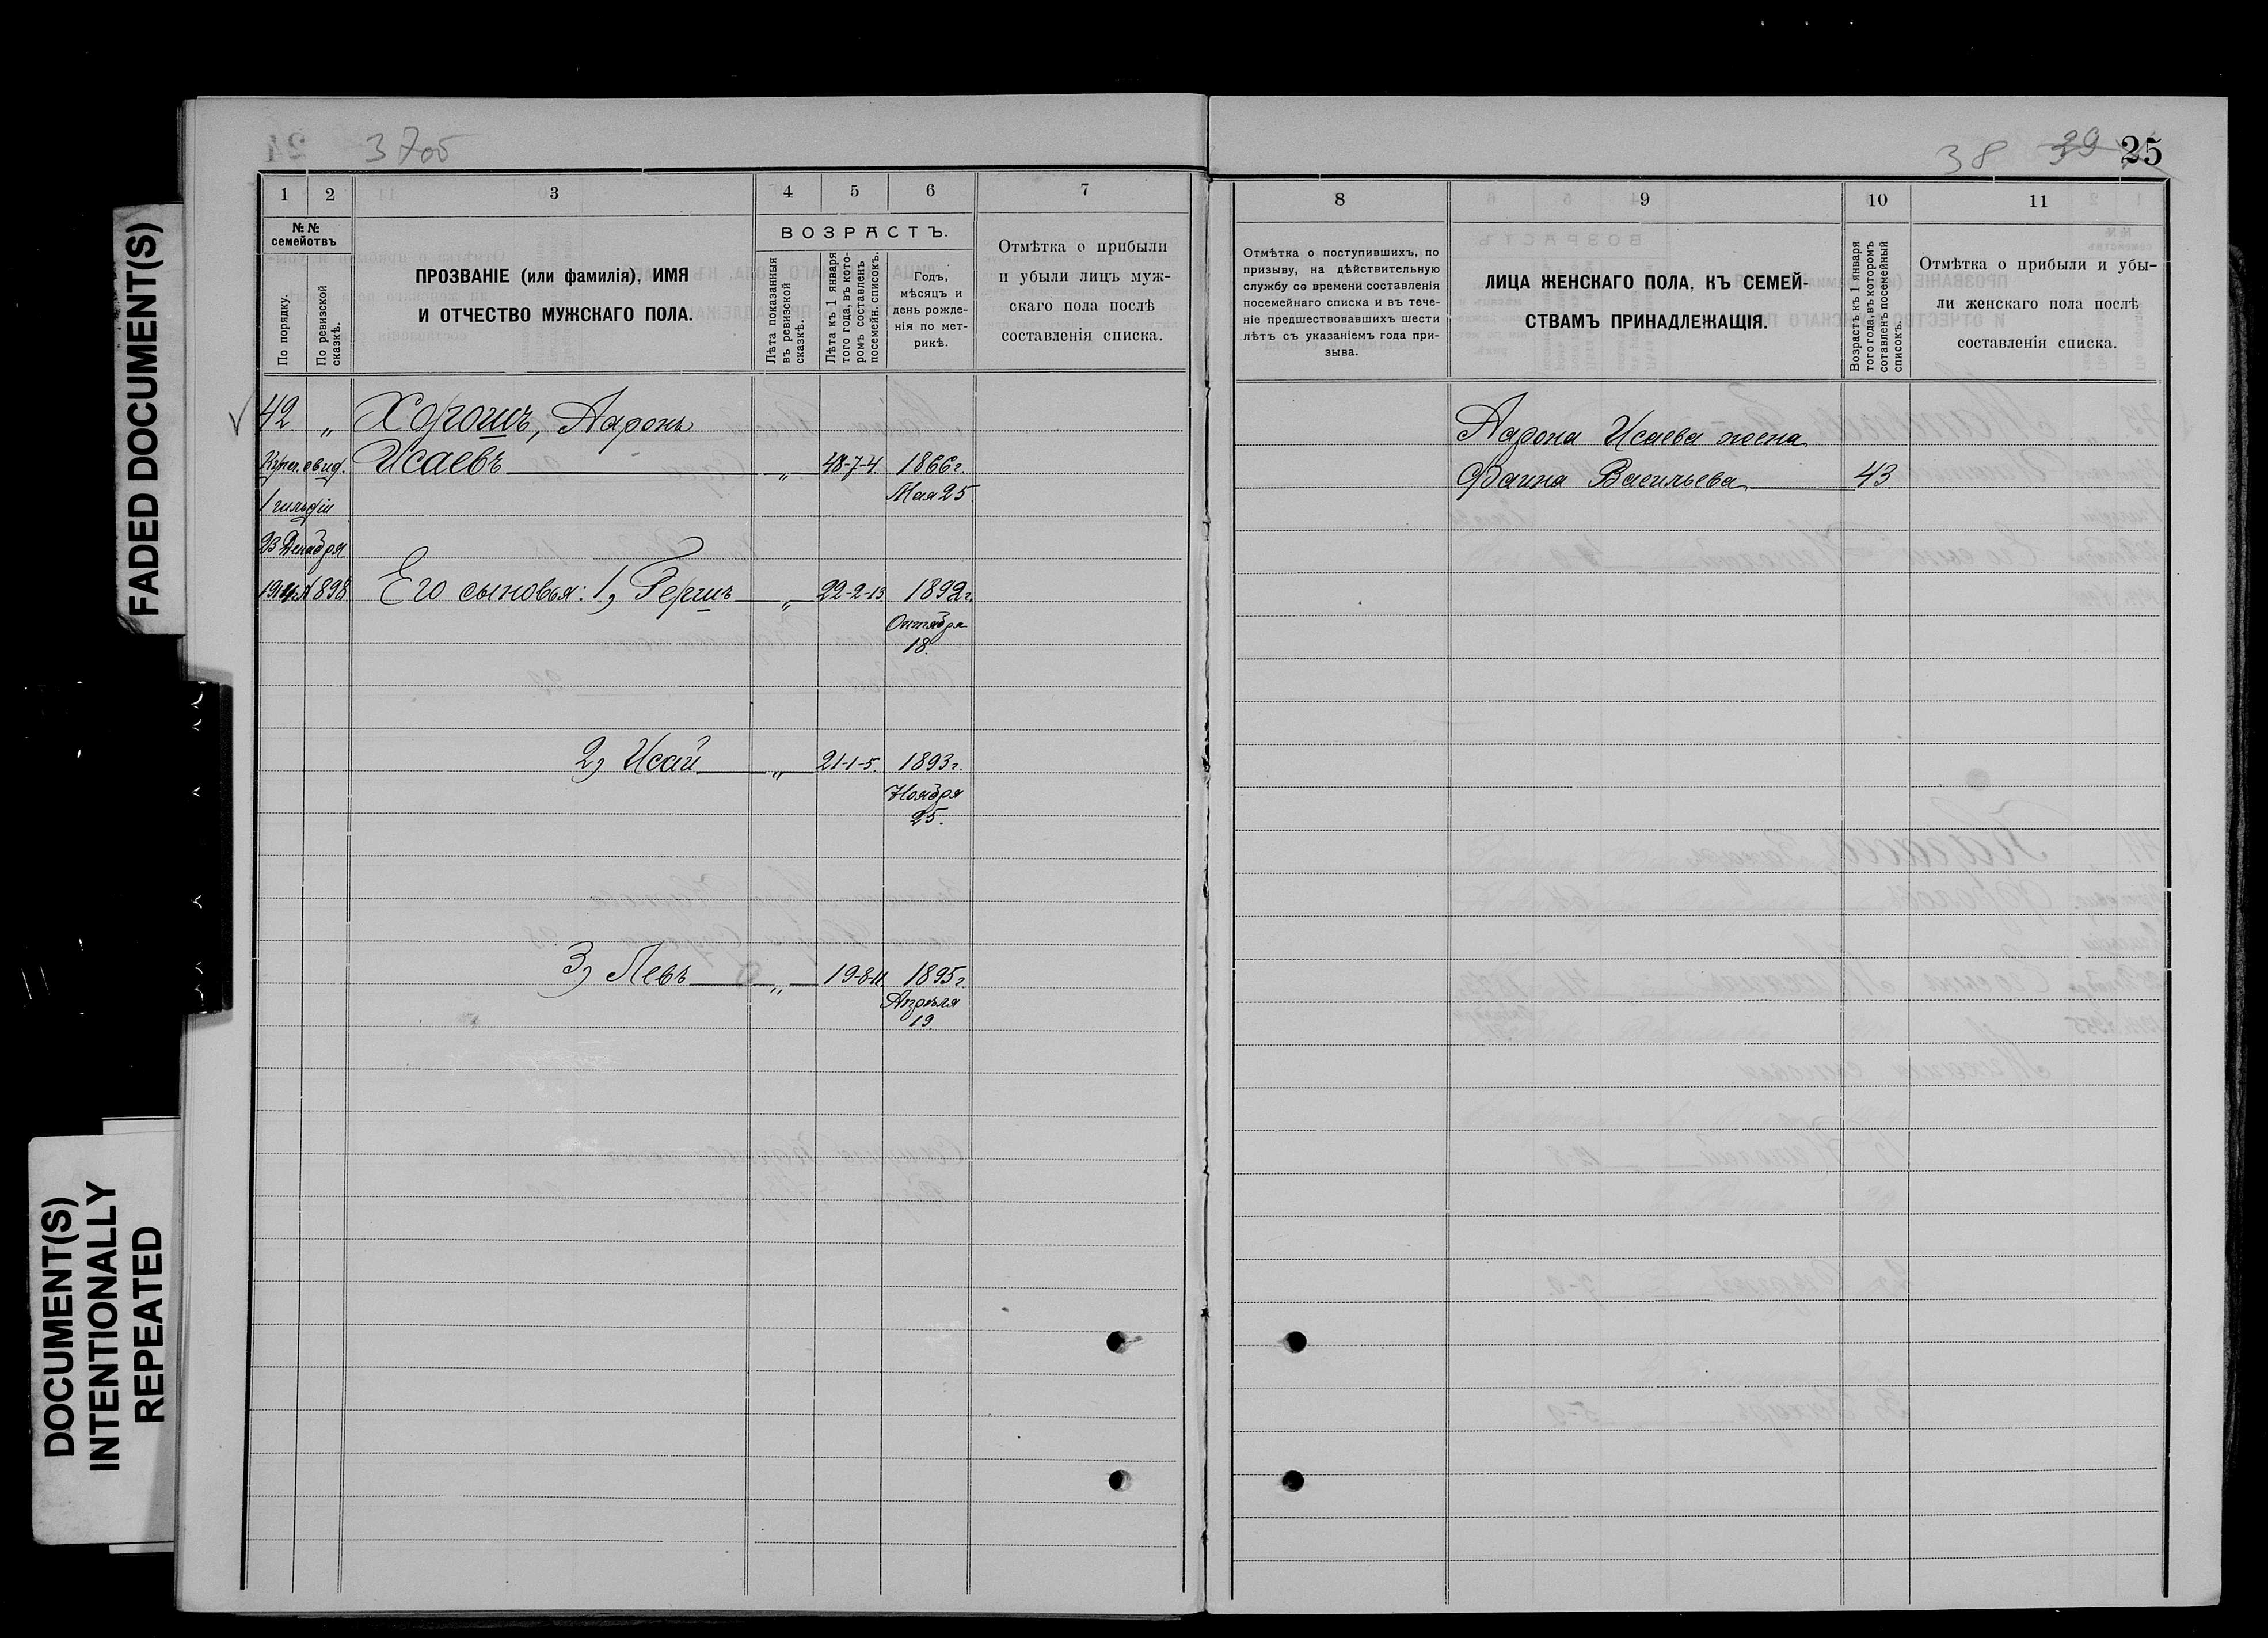 FADED DOCUMENT(S)
DOCUMENT(S)
INTENTIONALLY
REPEATED
37об
1 2 3 4 5 6 7
№№
семействъ
По порядку.
По ревизской
сказкѣ.
ПРОЗВАНІЕ (или фамилія), ИМЯ
И ОТЧЕСТВО МУЖСКАГО ПОЛА.
ВОЗРАСТЪ.
Лѣта показанныя
въ ревизской
сказкѣ.
Лѣта къ 1 января
того года, въ кото-
ромъ составленъ
посемейн. списокъ.
Годъ,
мѣсяцъ и
день рожде-
нія по мет-
рикѣ.
Отмѣтка о прибыли
и убыли лицъ муж-
скаго пола послѣ
составленія списка.
42 „ Хорошъ, Ааронъ
Купеч. свид. Исаевъ „ 48-7-4 1866г.
1 гильдіи Мая 25.
23 Декабря
1914 г. 1898 Его сыновья: 1, Гершъ „ 22-2-13 1892г.
Октября
18.
2, Исай „ 21-1-5. 1893г.
Ноября
25.
3, Левъ „ 19-8-11 1895г
Апрѣля
19
38 39 25
8 9 10 11
Отмѣтка о поступившихъ, по
призыву, на дѣйствительную
службу со времени составленія
посемейнаго списка и въ тече-
ніе предшествовавшихъ шести
лѣтъ съ указаніемъ года при-
зыва.
ЛИЦА ЖЕНСКАГО ПОЛА, КЪ СЕМЕЙ-
СТВАМЪ ПРИНАДЛЕЖАЩІЯ.
Возрастъ къ 1 января
того года, въ которомъ
сотавленъ посемейный
списокъ.
Отмѣтка о прибыли и убы-
ли женскаго пола послѣ
составленія списка.
Аарона Исаева жена
Фаина Васильева 43